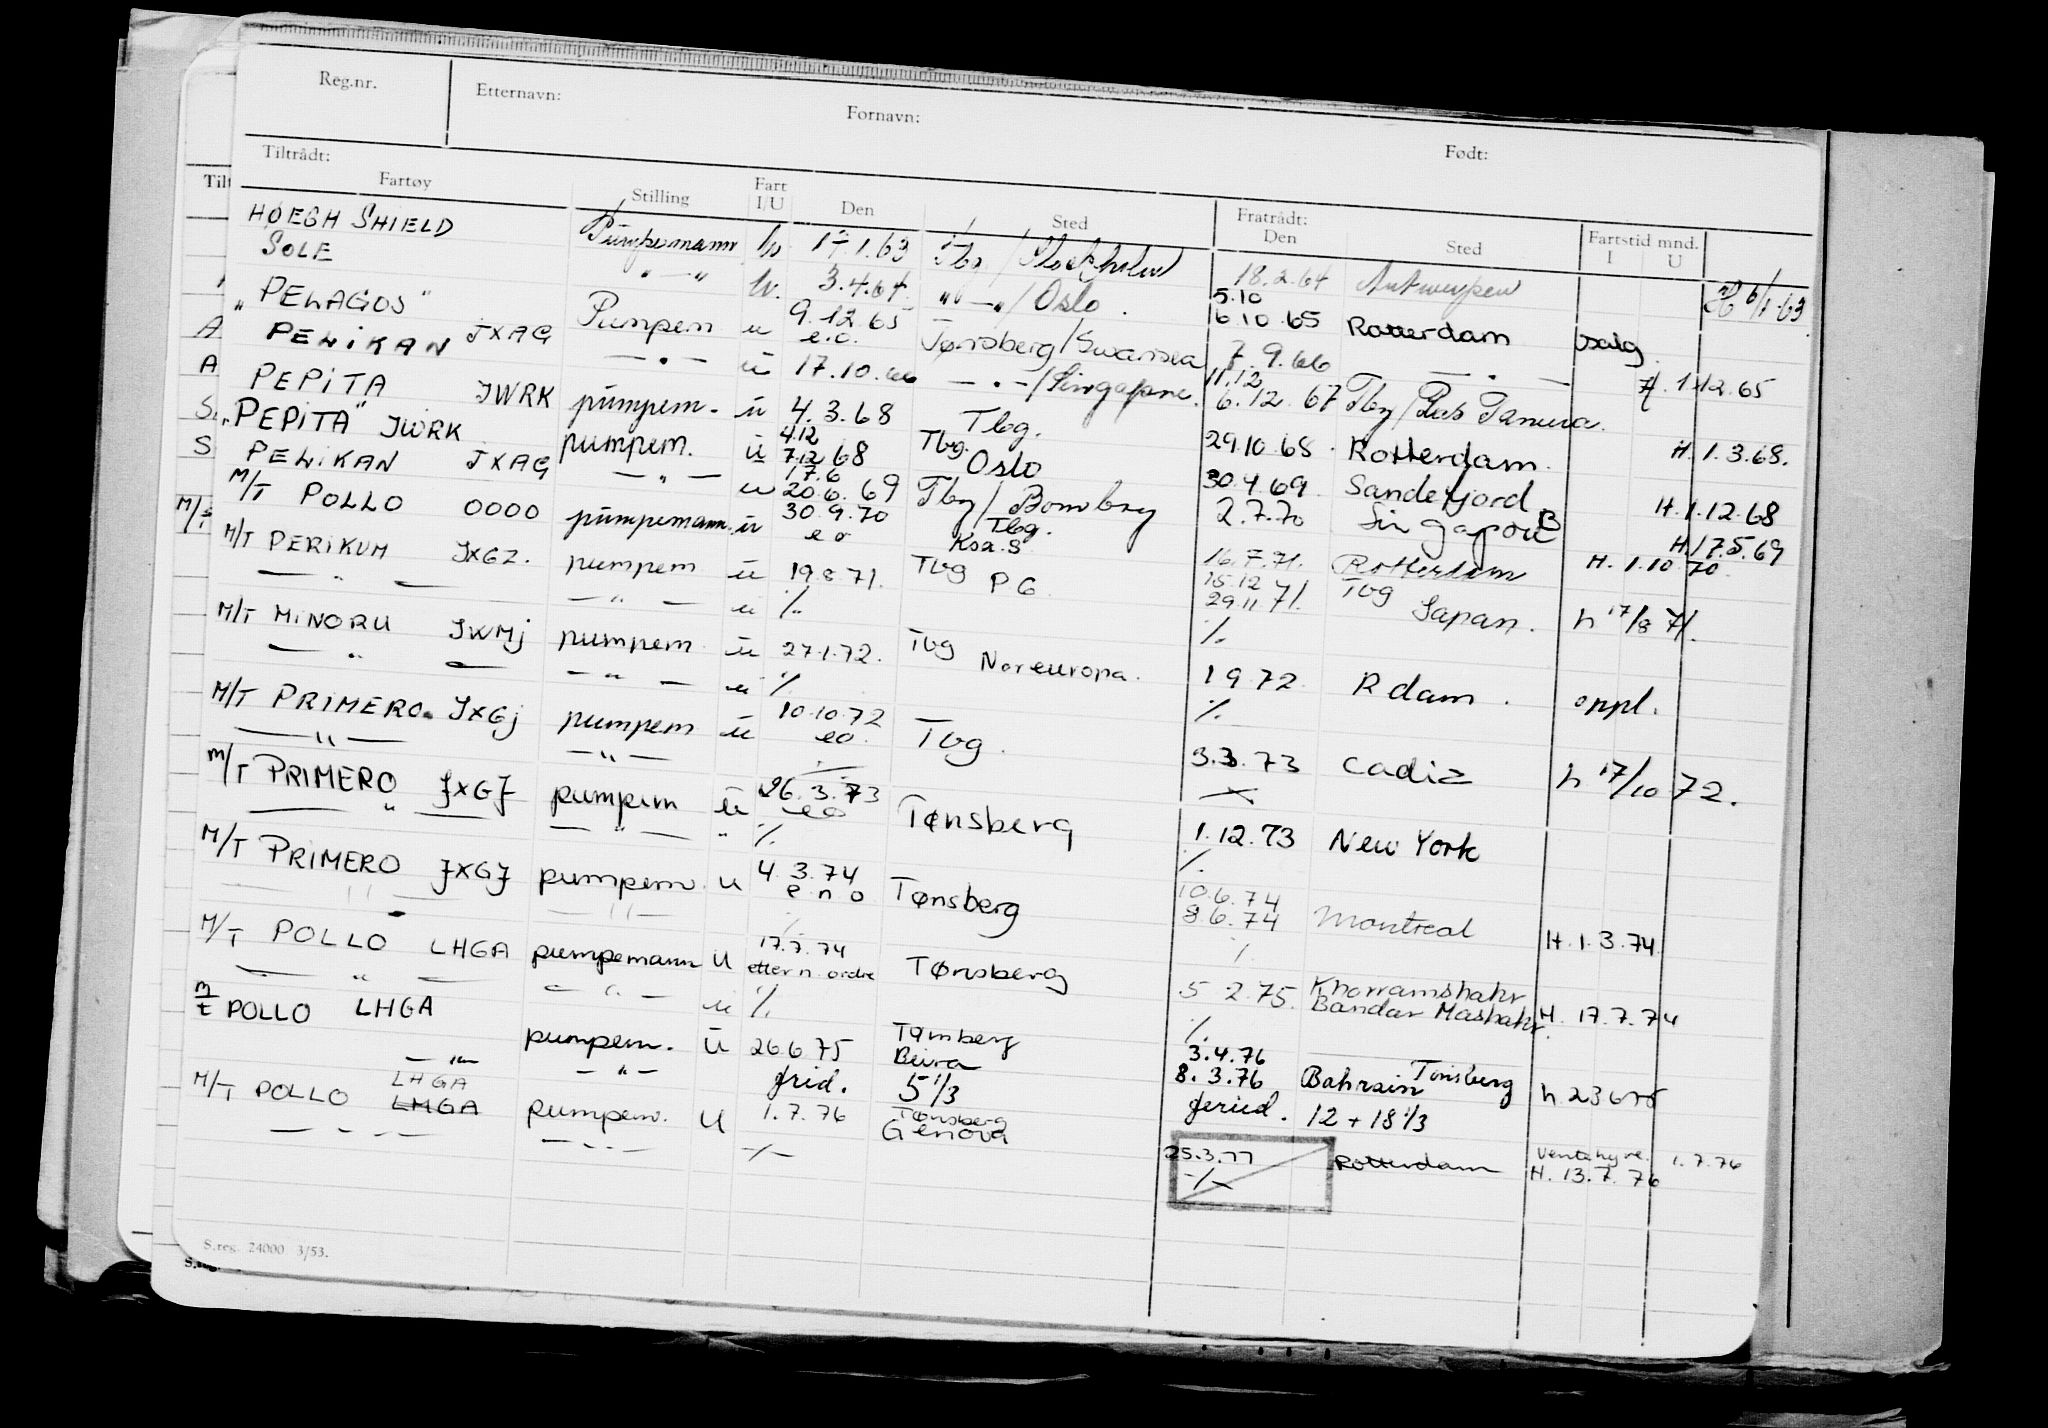 Reg.nr. Etternavn: Fornavn: Født:
Tiltrådt: Fratrådt:
Fartøy Stilling Fart I/U Den Sted Den Sted Fartstid mnd. I U
HØEGH SHIELD Pumpemann 17.1.63 Tbg / Stockholm 18.2.64 Antwerpen 6/1.63
SOLE " — " 3.4.64 " — " / Oslo. 5.10 6.10.65 Rotterdam salg.
"PELAGOS" JXAG Pumpem u 9.12.65 e.o. Tønsberg / Swansea 7.9.66 — " — H. 1.12.65
PELIKAN — " — u 17.10.66 — " — / Singapore. 11.12 6.12.67 Tbg / Ras Tanura.
PEPITA JWRK pumpem. u 4.3.68 Tbg. 29.10.68. Rotterdam. H. 1.3.68.
"PEPITA" JWRK pumpem. u 4.12 7.12.68 Tbg. Oslo 30.4.69. Sandefjord H. 1.12.68
PELIKAN JXAG — " — u 17.6 20.6.69 Tbg / Bombay 2.7.70 Singapore B H. 17.5.69
M/T POLLO OOOO pumpemann. u 30.9.70 e o Tbg. 16.7.71. Rotterdam H. 1.10.70.
M/T PERIKUM JXGZ. pumpem u 19.8.71. Tbg P G. 15.12 29.11.71. Tbg Japan. h 17/8 71.
— " — — " — u %. %.
M/T MINORU JWMJ pumpem u 27.1.72. Tbg Nor europa. 1 9.72. R dam. oppl.
— " — — " — u %. %.
M/T PRIMERO JXGJ pumpem u 10.10.72 eo. Tbg. 3.3.73 Cadiz h 17/10 72.
— " — — " —
M/T PRIMERO JXGJ pumpem u 26.3.73 eo Tønsberg 1.12.73 New York
— " — — " — " %. %.
M/T PRIMERO JXGJ pumpem. u 4.3.74 e n o Tønsberg 10.6.74 8.6.74 Montreal H. 1.3.74
— " — — " — %. %.
M/T POLLO LHGA pumpemann u 17.7.74 etter n. ordre Tønsberg 5 2.75. Khorramshahr Bandar Mashahr. H. 17.7.74
— " — — " — u %. %.
M/T POLLO LHGA pumpem. u 26.6.75 Tønsberg Beira 3.4.76 8.3.76 Bahrain Tønsberg h 23 6 75
— " — — " — frid. 5 1/3 feried. 12 + 18 1/3
M/T POLLO LHGA LHGA pumpem. U 1.7.76 Tønsberg Genova 25.3.77 Rotterdam Ventehyre. 1.7.76 H. 13.7.76
— " — — " — -/- -/-
S.reg. 24000 3/53.